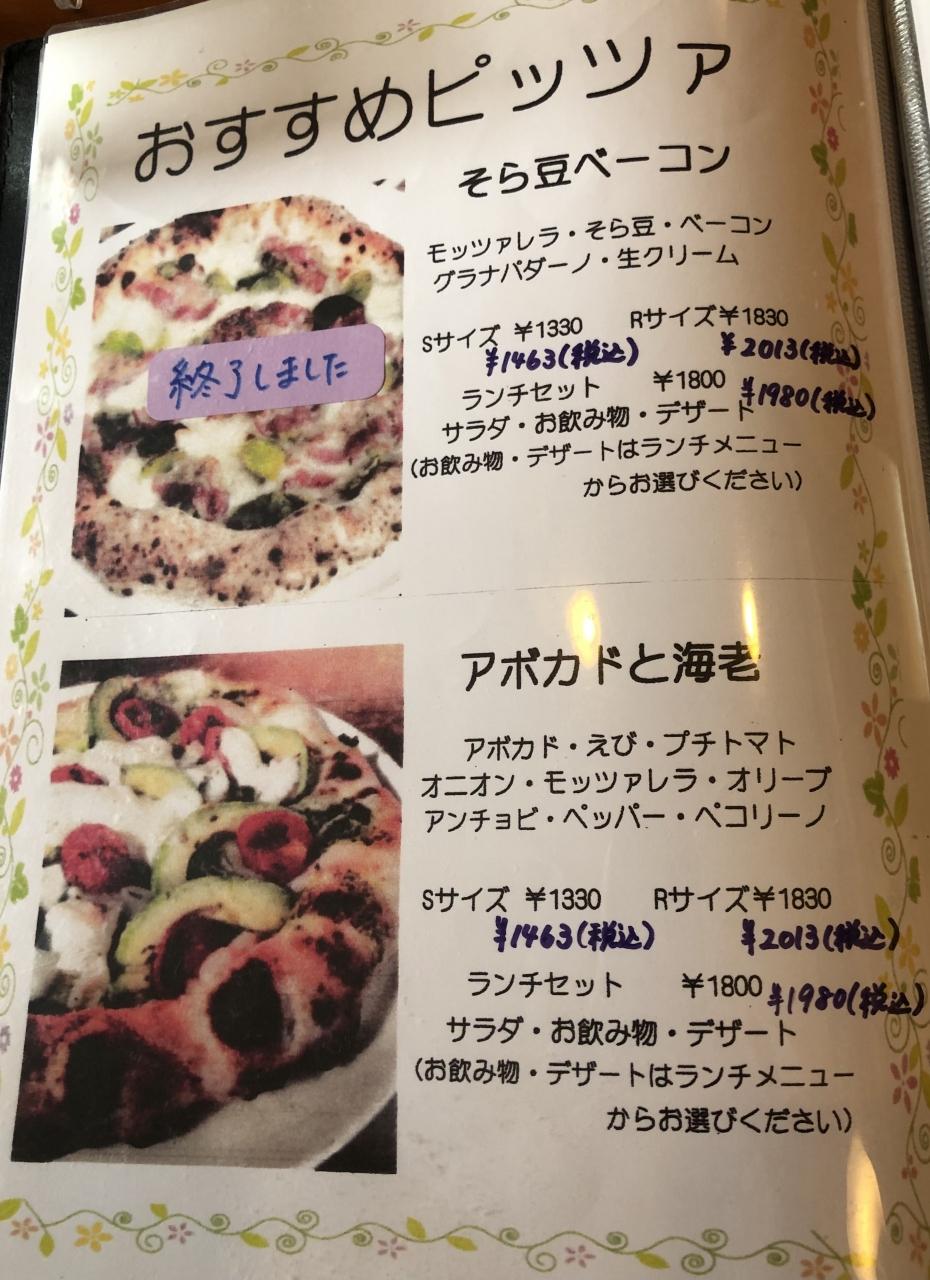 おすすめピッツァ
そら豆ベーコン
モッツァレラ・そら豆・ベーコン
グラナパダーノ・生クリーム
終了しました
Sサイズ ￥1330 Rサイズ￥1830
￥1463(税込) ￥2013(税込)
ランチセット ￥1800 ￥1980(税込)
サラダ・お飲み物・デザート
(お飲み物・デザートはランチメニュー
からお選びください)
アボカドと海老
アボカド・えび・プチトマト
オニオン・モッツァレラ・オリーブ
アンチョビ・ペッパー・ペコリーノ
Sサイズ ￥1330 Rサイズ￥1830
￥1463(税込) ￥2013(税込)
ランチセット ￥1800 ￥1980(税込)
サラダ・お飲み物・デザート
(お飲み物・デザートはランチメニュー
からお選びください)